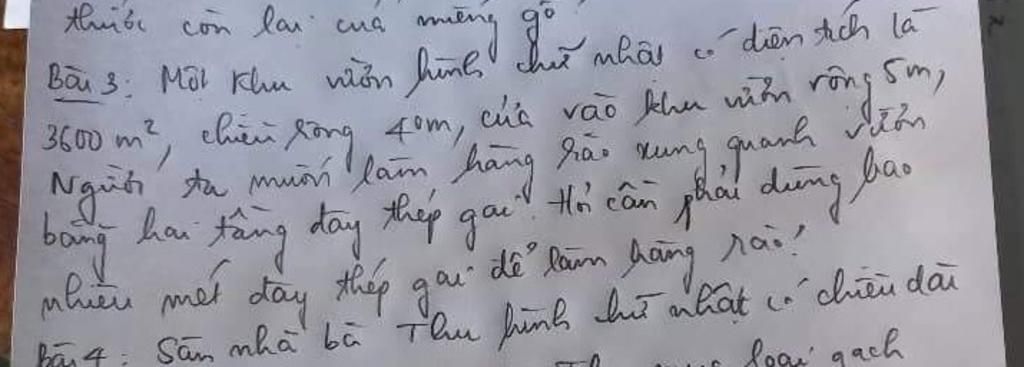 thước còn lại của miếng gỗ
Bài 3: Một khu vườn hình chữ nhật có diện tích là
3600 m², chiều rộng 40m, cửa vào khu vườn rộng 5m,
Người ta muốn làm hàng rào xung quanh vườn
bằng hai tầng dây thép gai. Hỏi cần phải dùng bao
nhiêu mét dây thép gai để làm hàng rào?
Bài 4: Sân nhà bà Thu hình chữ nhật có chiều dài
loại gạch